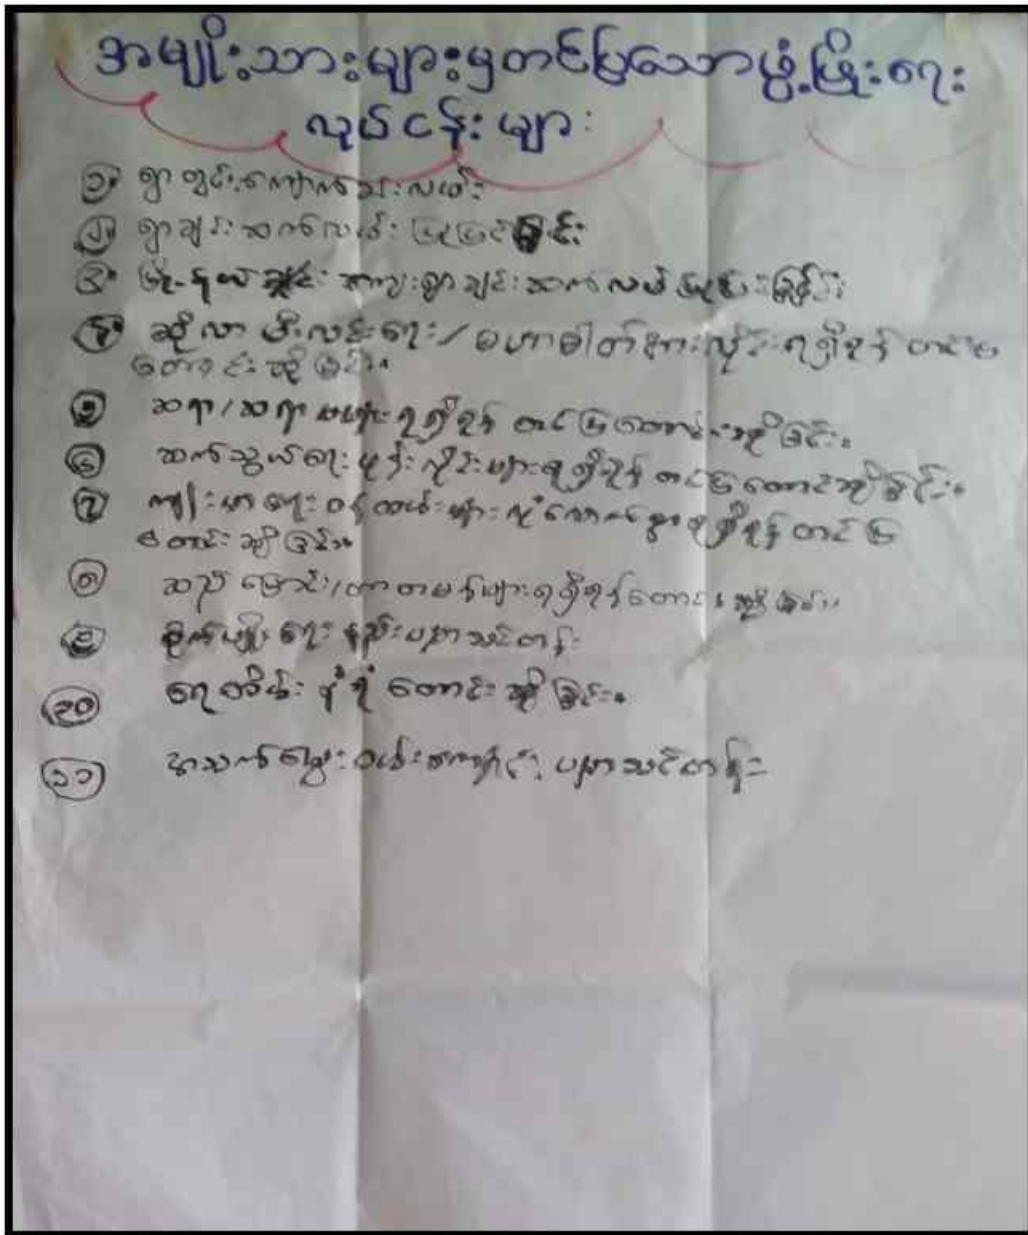 အမျိုးသားများမှတင်ပြသောဖွံ့ဖြိုးရေး
လုပ်ငန်းများ
၁။ ရွာတွင်းကျောက်ခင်းလမ်း
၂။ ရွာချင်းဆက်လမ်း ပြုပြင်ခြင်း
၃။ မြို့နယ်ချင်း ရွာချင်းဆက်လမ်း ခြင်း
၄။ ဆိုလာ မီးလင်းရေး/မဟာဓါတ်အားလိုင်းရရှိရန် တင်ပြ
တောင်းဆိုခြင်း။
၅ ဆရာ/ဆရာမများရရှိရန် တင်ပြတောင်းဆိုခြင်း။
၆ ဆက်သွယ်ရေး ဖုန်းလိုင်းများရရှိရန် တင်ပြတောင်းဆိုခြင်း။
၇ ကျန်းမာရေး ဝန်ထမ်းများ လုံလောက်စွာရရှိရန် တင်ပြ
တောင်းဆိုခြင်း။
၈ ဆည်မြောင်း/တာတမံများရရှိရန်တောင်းဆိုခြင်း။
၉ စိုက်ပျိုးရေး နည်းပညာသင်တန်း
၁၀ ရေထိန်းနံရံ တောင်းဆိုခြင်း။
၁၁ အသက်မွေးဝမ်းကျောင်း ပညာသင်တန်း